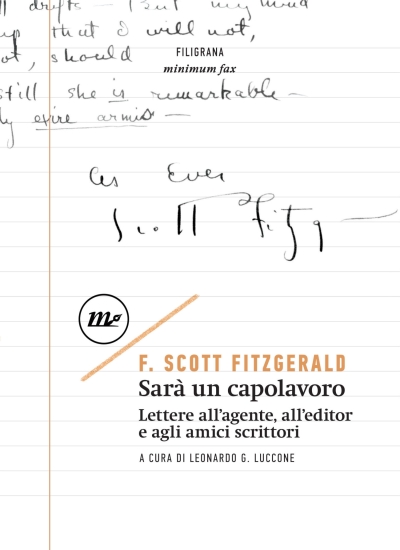 drifts – I but my mind
up that I will not,
not, should
FILIGRANA
minimum fax
still she is remarkable –
armis –
As Ever
Scott Fitzg
m
F. SCOTT FITZGERALD
Sarà un capolavoro
Lettere all'agente, all'editor
e agli amici scrittori
A CURA DI LEONARDO G. LUCCONE